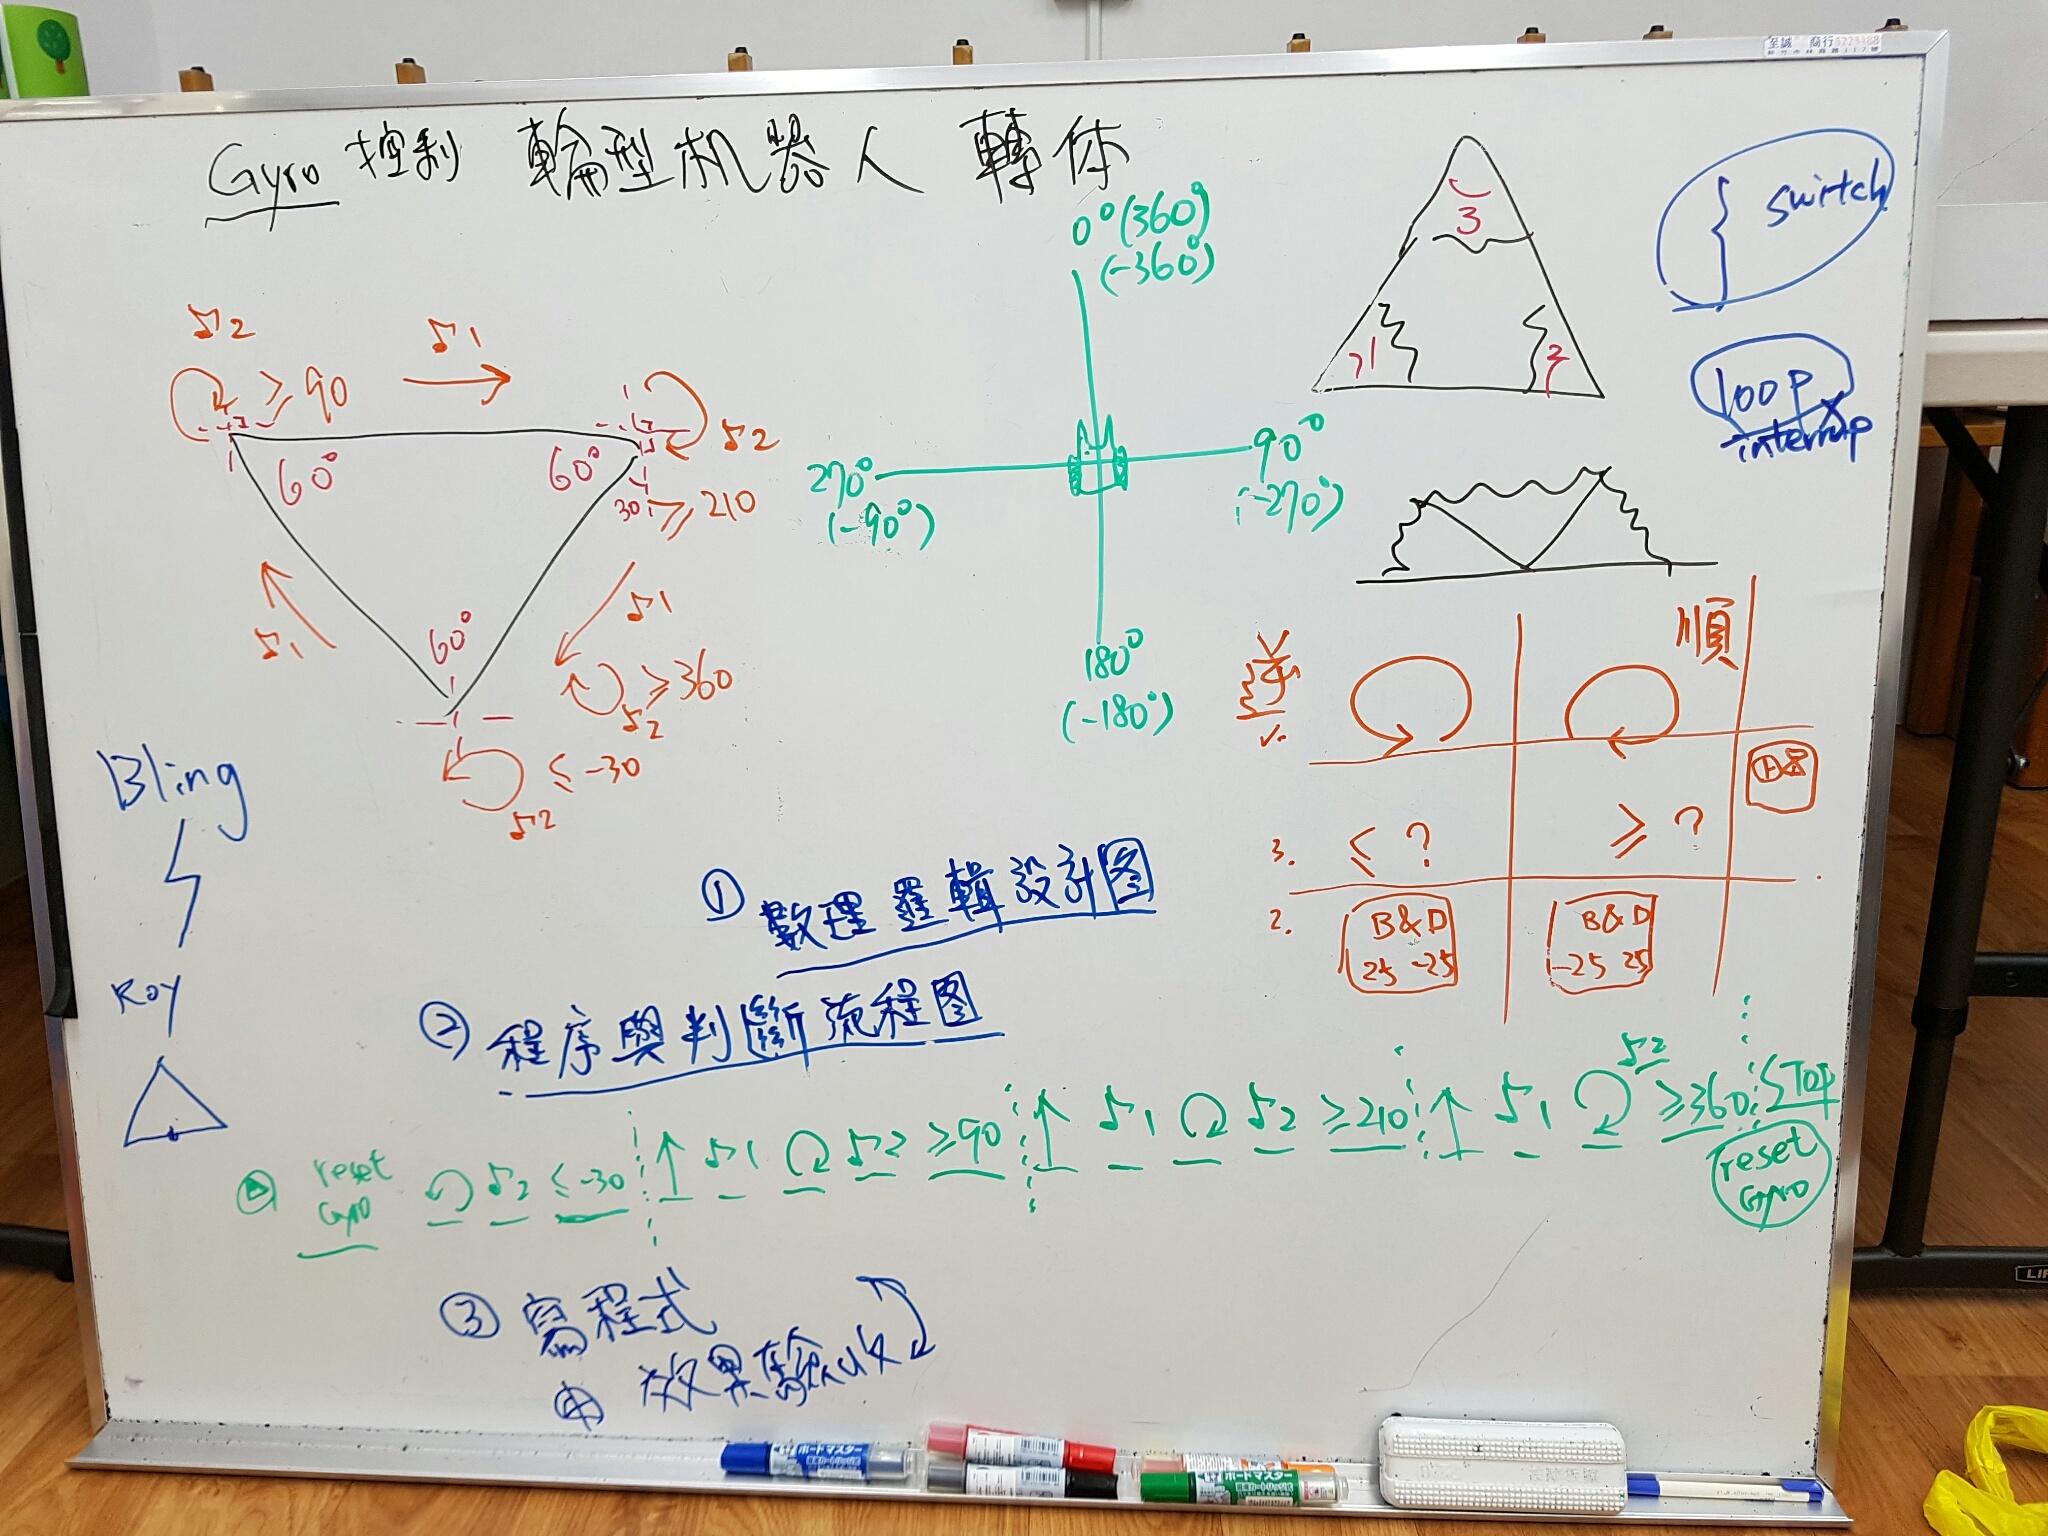 Gyro 控制 輪型机器人 轉体
0°(360°)
(-360°)
90°
(-270°)
180°
(-180°)
270°
(-90°)
♪2
≥90
♪1
♪2
60°
60°
30
≥210
♪1
♪1
60°
≥360
♪2
≤-30
♪2
3
1
2
{ switch
loop
interrup
逆
順
3. ≤ ? ≥ ?
2. B&D B&D
25 -25 -25 25
Bling
Roy
① 數理邏輯設計图
② 程序與判斷流程图
reset
Gyro
♪2 ≤-30 ↑ ♪1 ♪2 ≥90 ↑ ♪1 ♪2 ≥210 ↑ ♪1 ♪2 ≥360 STOP
reset
Gyro
③ 寫程式
④ 效果驗收
ボードマスター
ボードマスター